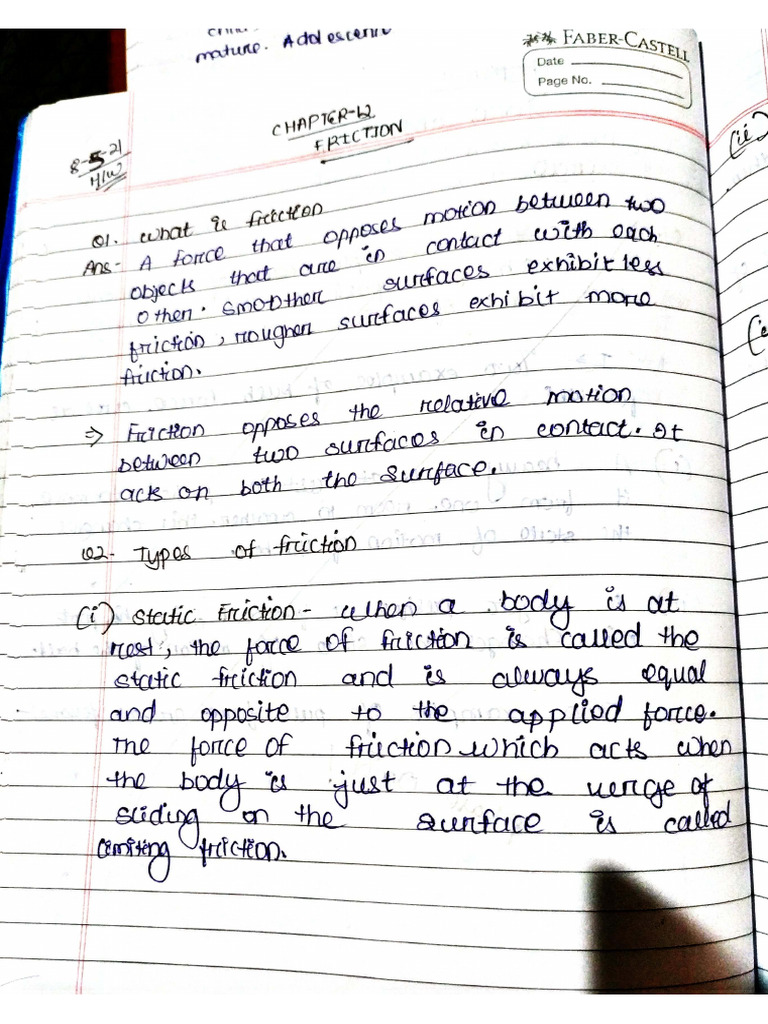 mature. Adolescenc
FABER-CASTELL
Date
Page No.
CHAPTER-12
FRICTION
8-5-21
H/W
Q1. What is friction
Ans- A force that opposes motion between two
objects that are in contact with each
other. Smother surfaces exhibit less
friction, rougher surfaces exhibit more
friction.
⇒ Friction opposes the relative motion
between two surfaces in contact. It
acts on both the surface.
Q2- Types of friction
(i) Static Friction- When a body is at
rest, the force of friction is called the
static friction and is always equal
and opposite to the applied force.
The force of friction which acts when
the body is just at the verge of
sliding on the surface is called
limiting friction.
(ii)